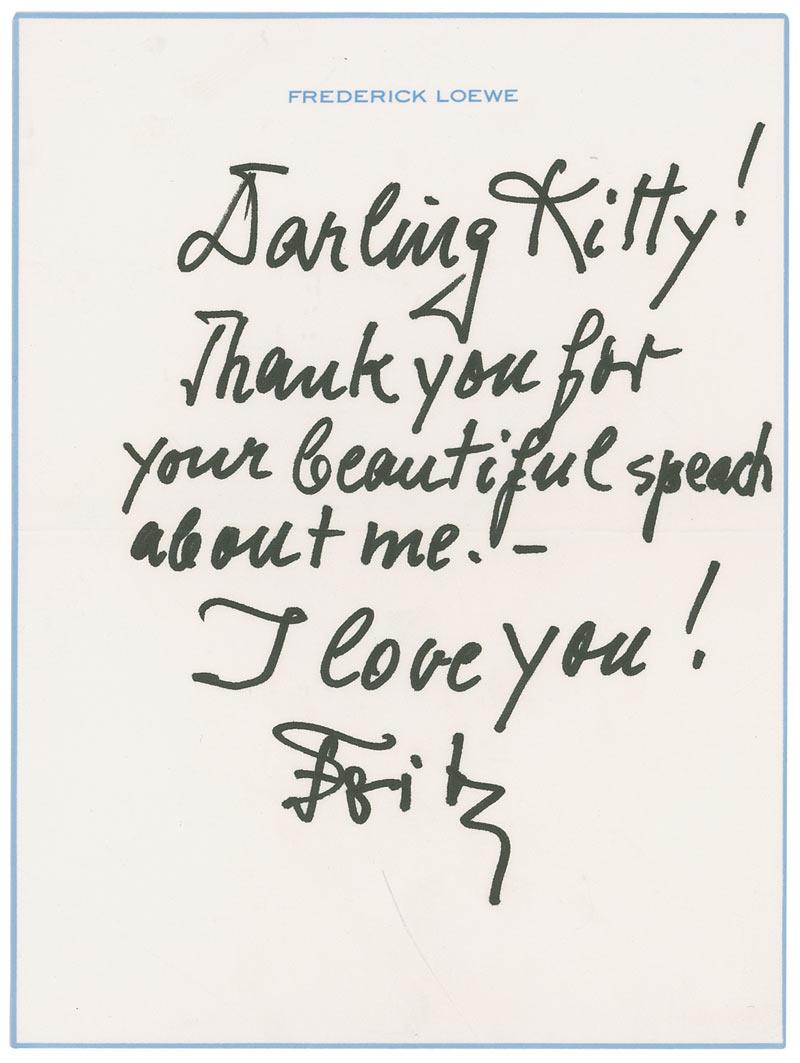 FREDERICK LOEWE
Darling Kitty!
Thank you for
your beautiful speach
about me. -
I love you!
Fritz